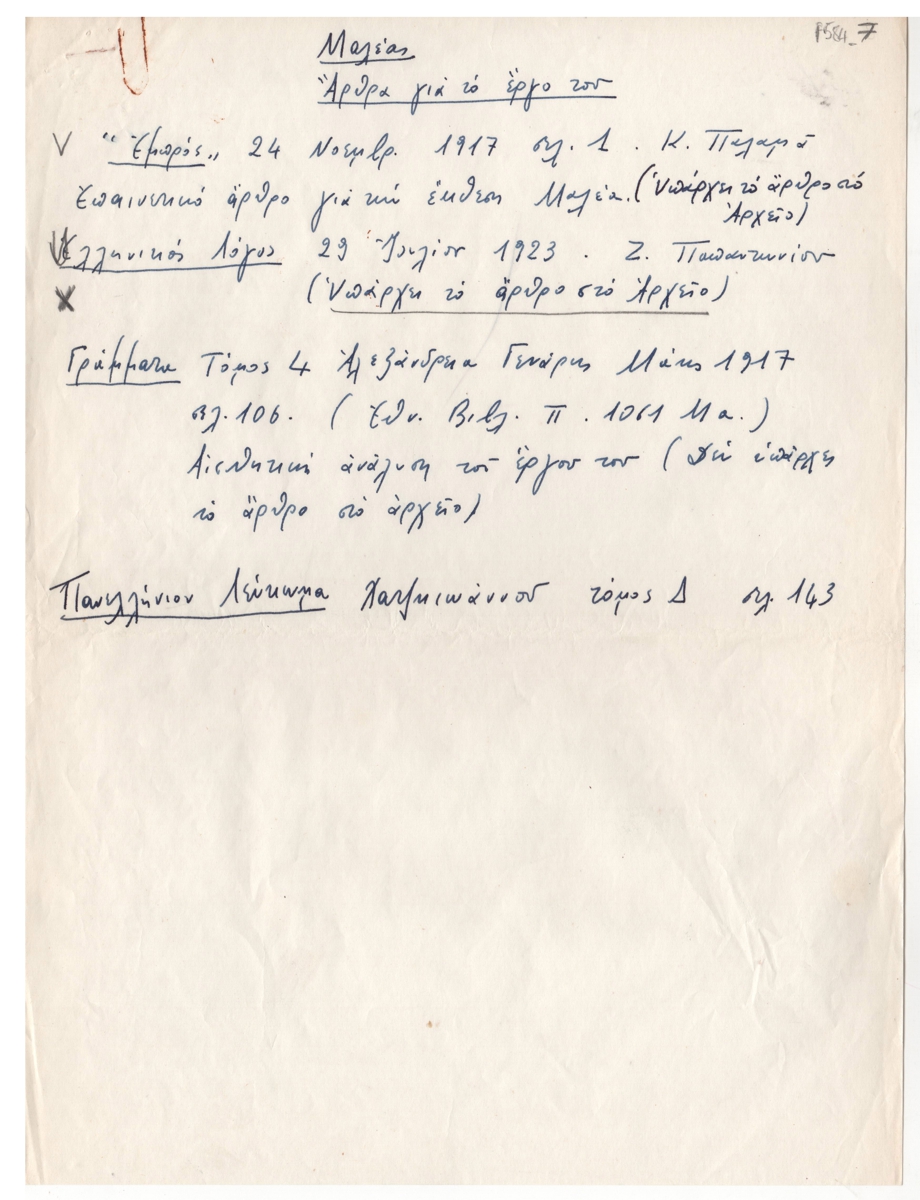 F584_7
Μαλέας
Ἄρθρα γιὰ τὸ ἔργο του
V "Ἐμπρός„ 24 Νοεμβρ. 1917 σελ. 1. Κ. Παλαμᾶ
Ἐπαινετικό ἄρθρο γιὰ τὴν ἔκθεση Μαλέα. (Ὑπάρχει τὸ ἄρθρο στό
Ἀρχεῖο)
Ἑλληνικός Λόγος 29 Ἰουλίου 1923. Ζ. Παπαντωνίου
X (Ὑπάρχει τὸ ἄρθρο στὸ Ἀρχεῖο)
Γράμματα Τόμος 4 Ἀλεξάνδρεια Γενάρης Μάης 1917
σελ. 106. (Ἐθν. Βιβλ. Π. 1061 Μα.)
Αἰσθητική ἀνάλυση τοῦ ἔργου του (Δέν ὑπάρχει
τὸ ἄρθρο στὸ ἀρχεῖο)
Πανελλήνιον Λεύκωμα Χατζηιωάννου τόμος Δ σελ. 143